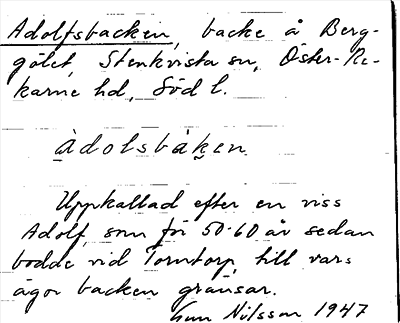 Adolfsbacken, backe å Berg-
gölet, Stenkvista sn, Öster-Re-
karne hd, Södl.
Àdolsbáken
Uppkallad efter en viss
Adolf, som för 50-60 år sedan
bodde vid Torntorp, till vars
ägor backen gränsar.
Gun Nilsson 1947